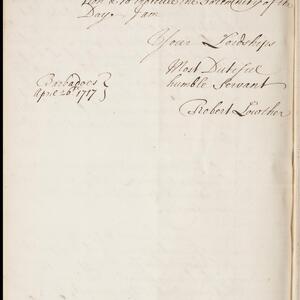 to the Solemnity of the
Day. I am
Your Lordships
Most Dutiful
humble Servant
Robert Lowther
Barbados
April 20th 1717